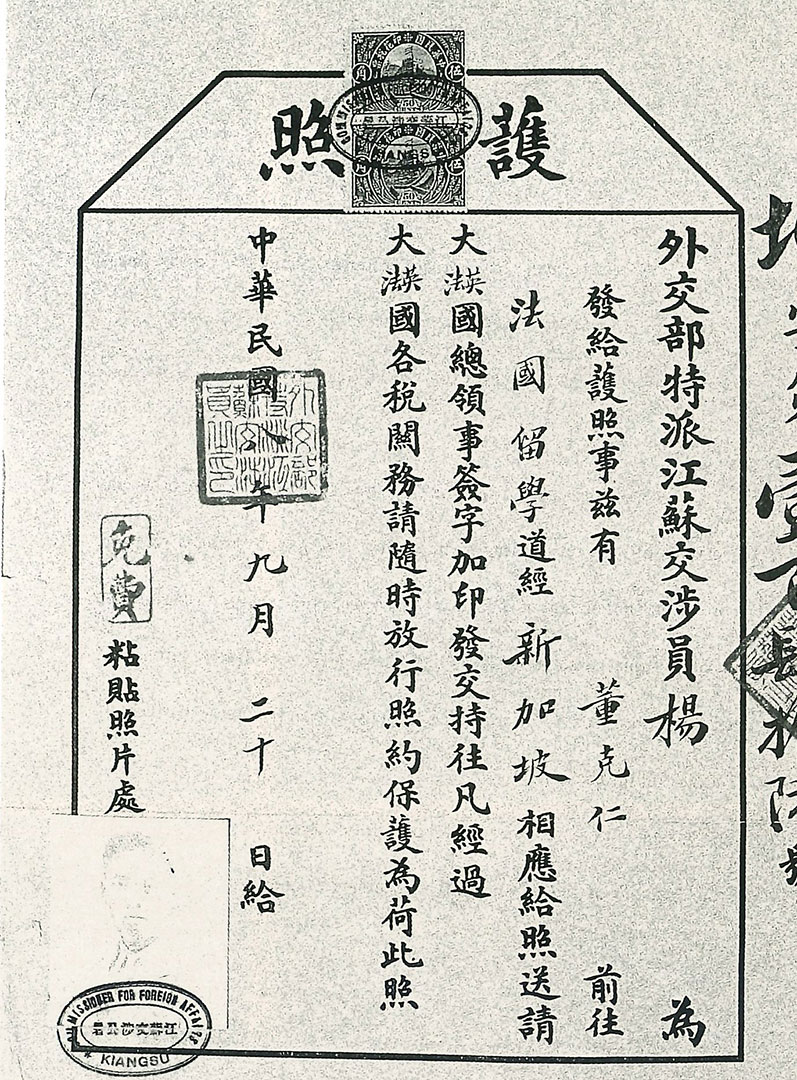 護照
外交部特派江蘇交涉員楊 為
發給護照事茲有 董克仁 前往
法國留學道經新加坡相應給照送請
大英法國總領事簽字加印發交持往凡經過
大英法國各稅關務請隨時放行照約保護為荷此照
中華民國八年九月二十日給
免費
粘貼照片處
COMMISSIONER FOR FOREIGN AFFAIRS
署公涉交蘇江
KIANGSU